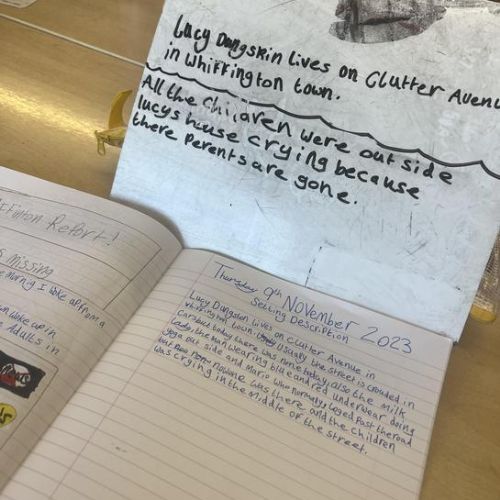 Lucy Dungskin Lives on Clutter Avenue
in Whiffington town.
All the Children were out side
lucys house crying because
there Perents are gone.
Report!
missing
woke up in
Adults in
Thursday 9th November 2023
Setting Description
Lucy Dungskin lives on clutter Avenue in
whiffington town. Usually the street is crowded in
Cars but today there was none today, also the milk
Lady, the man wearing blue and red underwear doing
yoga out side and Maria who normaly Loged Past the road
but now nowone was there and the children
was crying in the middle of the street.